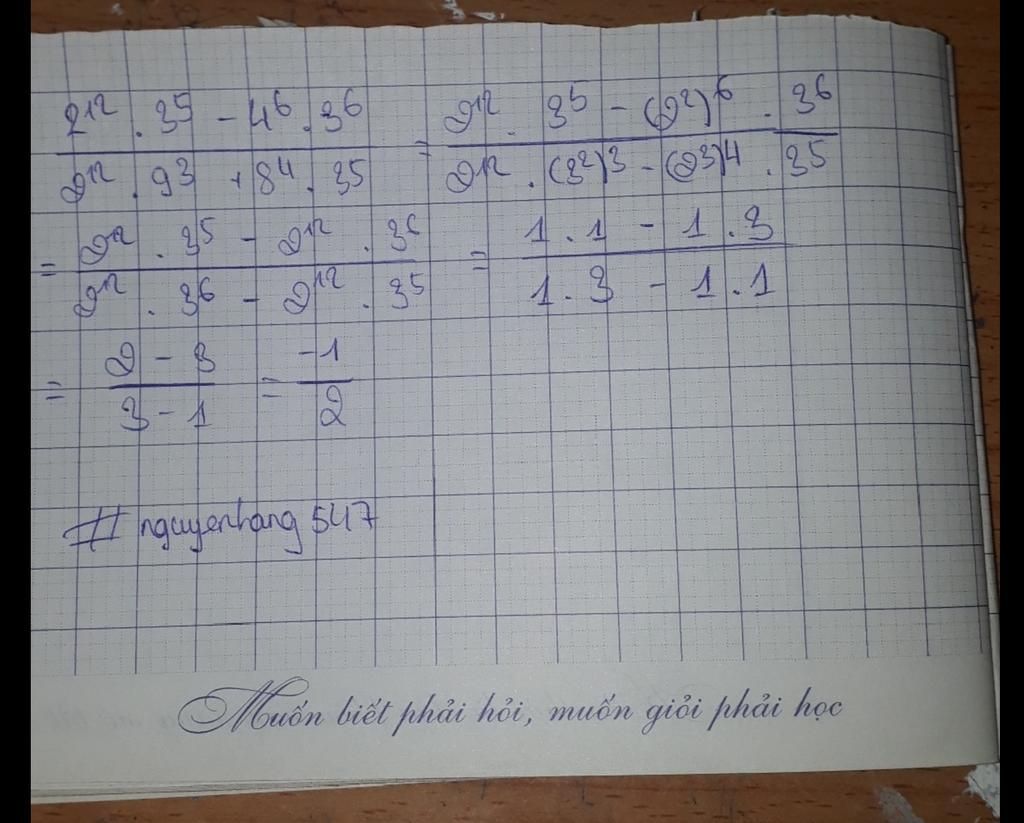 2¹² . 3⁵ - 4⁶ . 3⁶ / 2¹² . 9³ + 8⁴ . 3⁵ = 2¹² . 3⁵ - (2²)⁶ . 3⁶ / 2¹² . (3²)³ - (2³)⁴ . 3⁵
= 2¹² . 3⁵ - 2¹² . 3⁶ / 2¹² . 3⁶ - 2¹² . 3⁵ = 1 . 1 - 1 . 3 / 1 . 3 - 1 . 1
= 2 - 3 / 3 - 1 = -1 / 2
# nguyenhang547
Muốn biết phải hỏi, muốn giỏi phải học